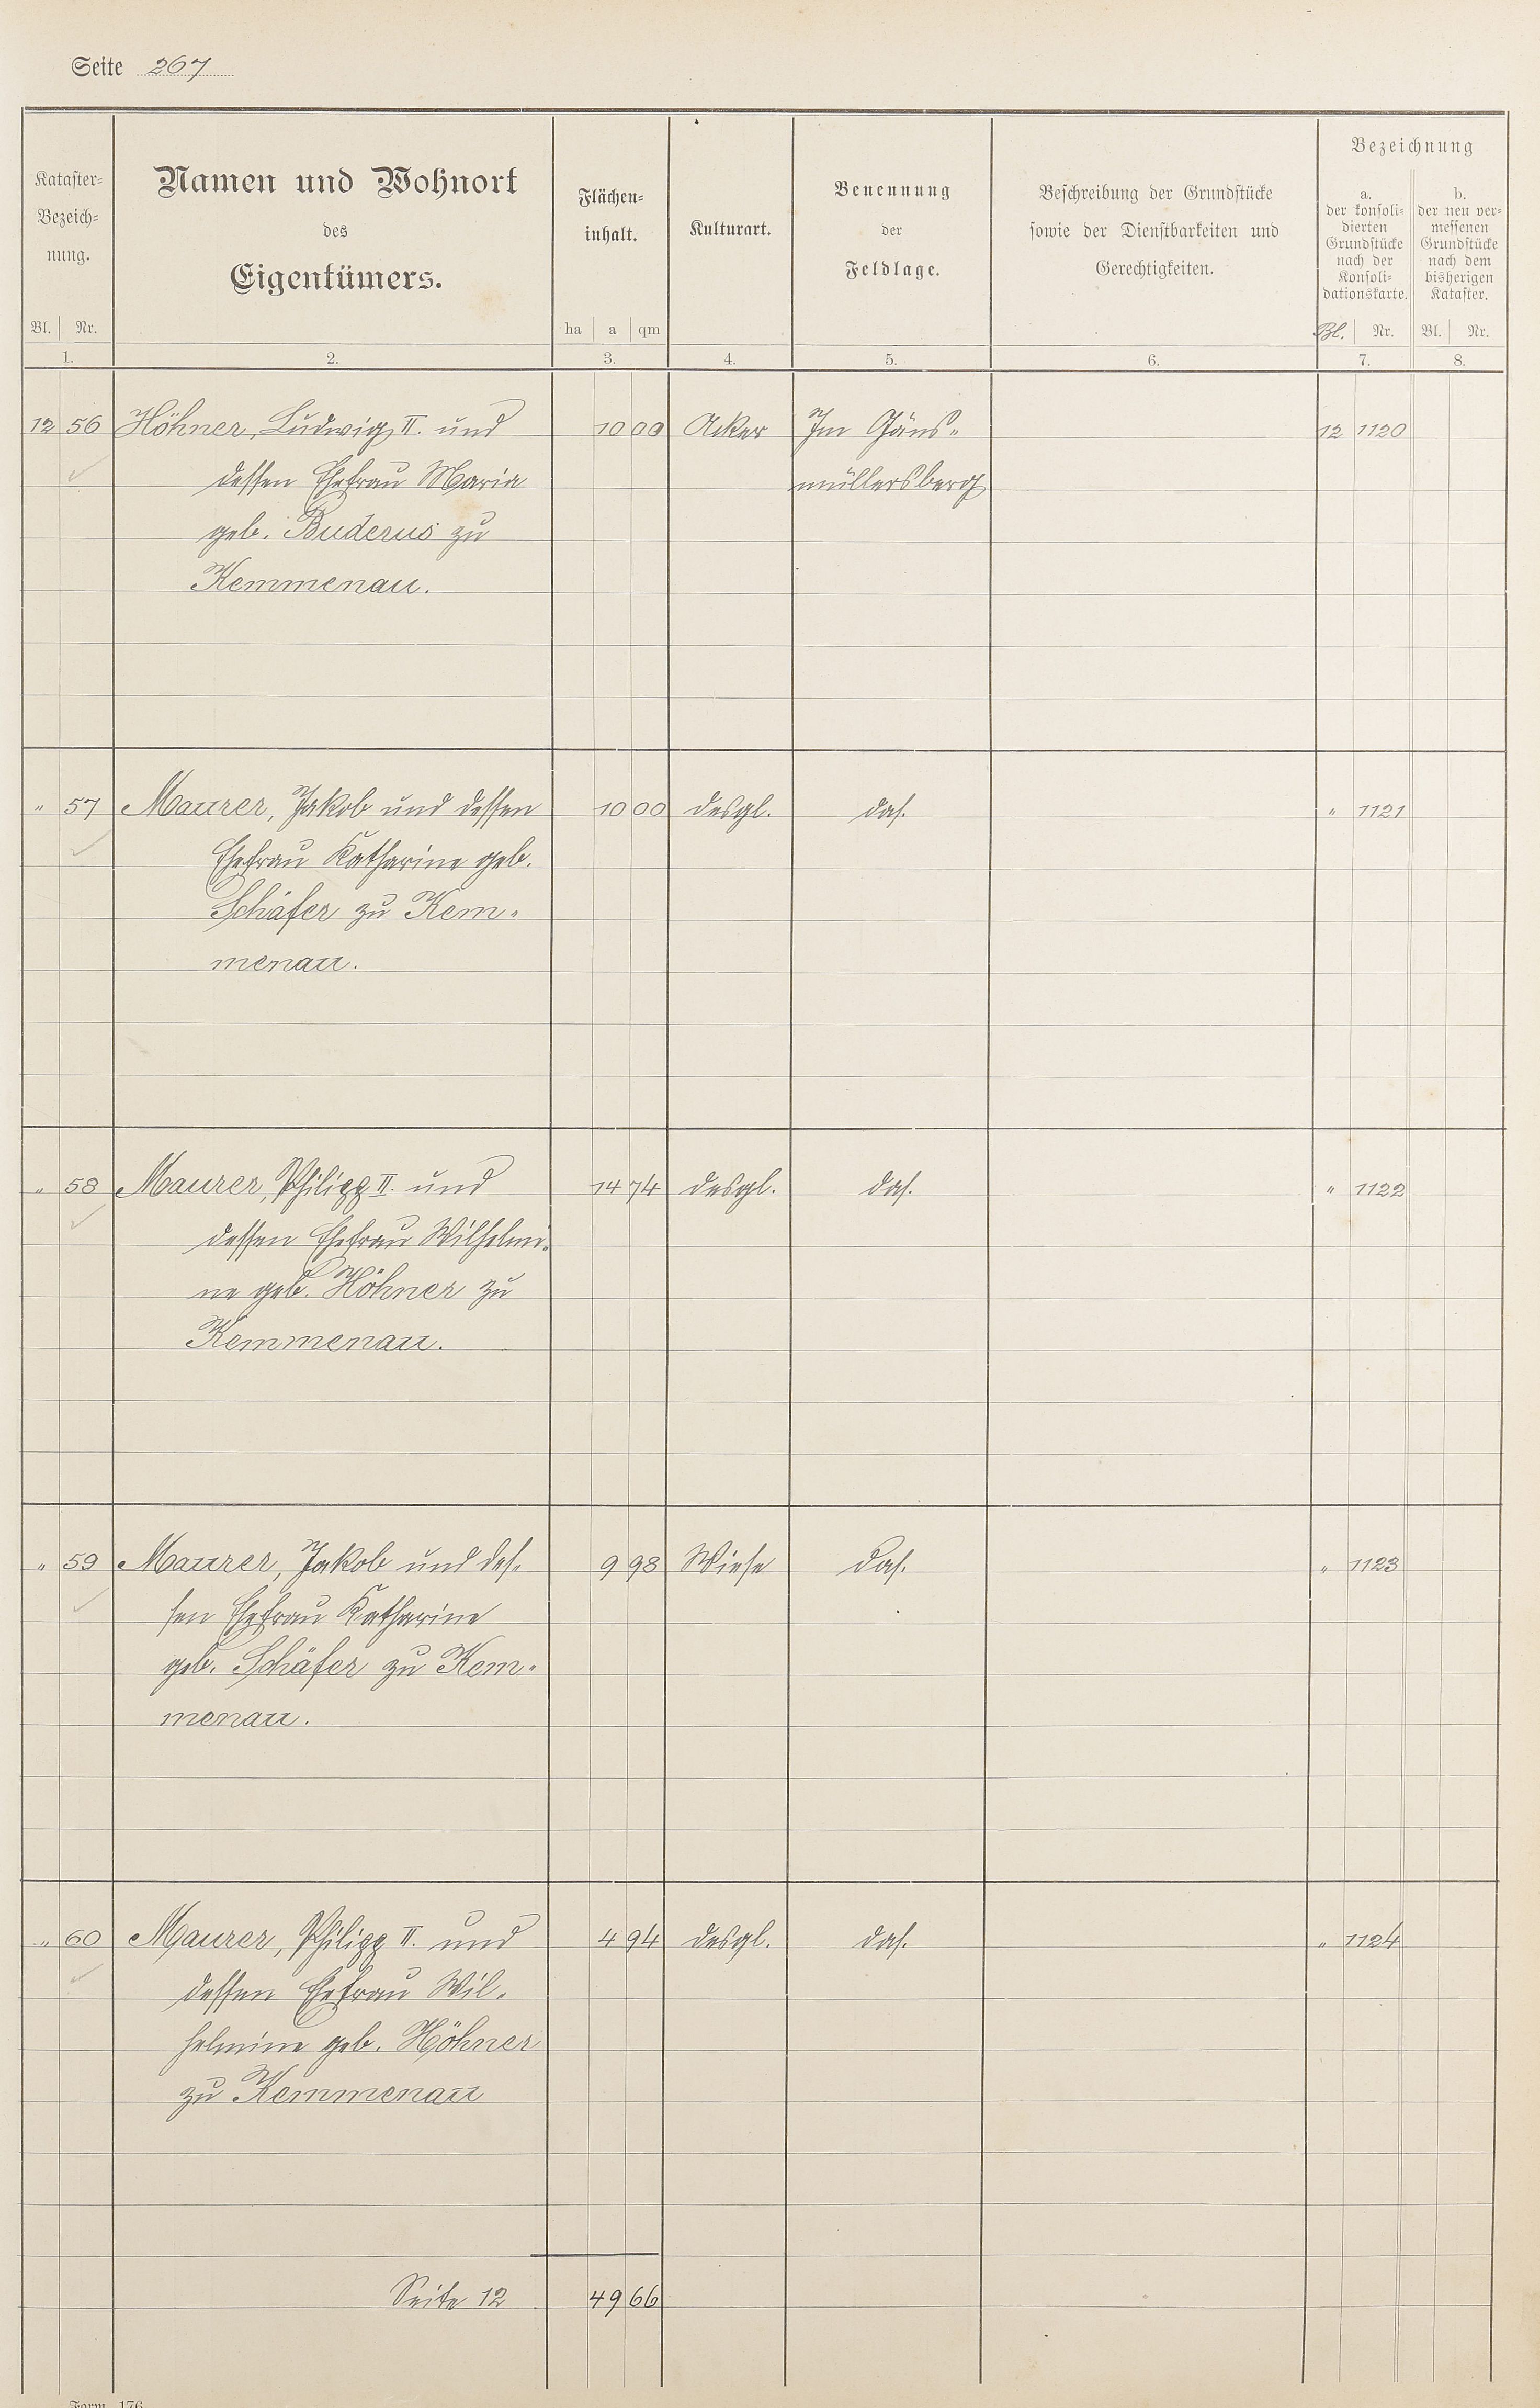 Seite 267
Kataster-
Bezeich-
nung.
Bl. Nr.
1.
Namen und Wohnort
des
Eigentümers.
2.
Flächen-
inhalt.
ha a qm
3.
Kulturart.
4.
Benennung
der
Feldlage.
5.
Beschreibung der Grundstücke
sowie der Dienstbarkeiten und
Gerechtigkeiten.
6.
Bezeichnung
a.
der konsoli-
dierten
Grundstücke
nach der
Konsoli-
dationskarte.
Bl. Nr.
7.
b.
der neu ver-
messenen
Grundstücke
nach dem
bisherigen
Kataster.
Bl. Nr.
8.
12 56 Höhner, Ludwig II. und 10 00 Acker Im Gäns- 12 1120
dessen Ehefrau Maria müllersberg
geb. Buderus zu
Kemmenau.
" 57 Maurer, Jakob und dessen 10 00 desgl. das. " 1121
Ehefrau Katharine geb.
Schäfer zu Kem-
menau.
" 58 Maurer, Philipp II. und 14 74 desgl. das. " 1122
dessen Ehefrau Wilhelmi-
ne geb. Höhner zu
Kemmenau.
" 59 Maurer, Jakob und des- 9 98 Wiese das. " 1123
sen Ehefrau Katharine
geb. Schäfer zu Kem-
menau.
" 60 Maurer, Philipp II. und 4 94 desgl. das. " 1124
dessen Ehefrau Wil-
helmine geb. Höhner
zu Kemmenau
Seite 12 49 66
Form. 176